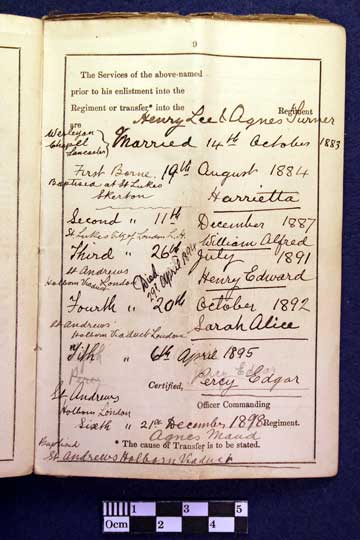 9
The Services of the above-named
prior to his enlistment into the
Regiment or transfer,* into the
Regiment
are
Henry Lee & Agnes Turner
Wesleyan
Chapell
Lancaster
Married 14th October 1883
First Borne 19th August 1884
Baptised at St Lukes
Skerton
Harrietta
Second " 11th December 1887
St Lukes City of London E.H.
William Alfred
Third " 26th July 1891
St Andrews
Holborn Viaduct London
Henry Edward
Died
29th April 1894
Fourth " 20th October 1892
St Andrews
Holborn Viaduct London
Sarah Alice
Fifth " 6th April 1895
Percy Edgar
Certified,
Percy Edgar
St Andrews
Holborn London
Officer Commanding
Sixth " 21st December 1898
Regiment.
Agnes Maud
* The cause of Transfer is to be stated.
Baptised
St Andrews Holborn Viaduct
0cm 1 2 3 4 5